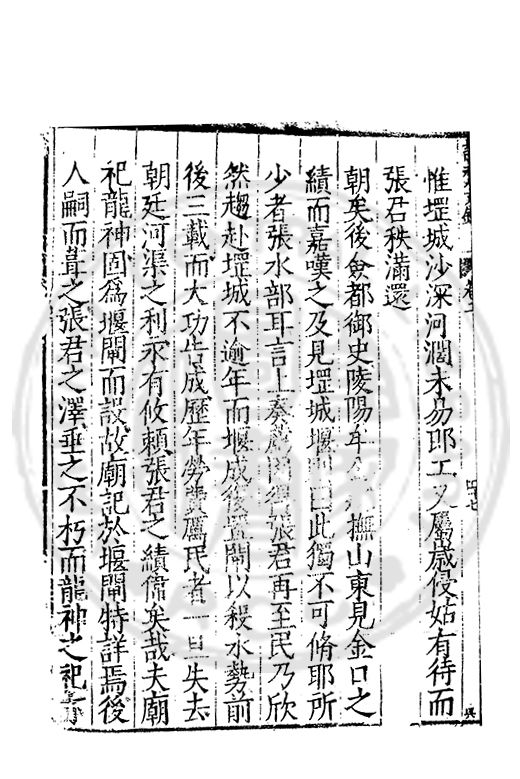 惟堽城沙深河濶未易即工又屬歲侵姑有待而
張君秩滿還
朝矣後僉都御史陵陽牟公 撫山東見金口之
績而嘉嘆之及見堽城堰 曰此獨不可脩耶所
少者張水部耳言上奏薦 張君再至民乃欣
然趨赴堽城不逾年而堰成後置閘以殺水勢前
後三載而大功告成歷年勞費厲民者一旦失去
朝廷河渠之利永有攸賴張君之績偹矣哉夫廟
祀龍神固爲堰閘而設故廟記於堰閘特詳焉後
人嗣而葺之張君之澤垂之不朽而龍神之祀
卷
四七